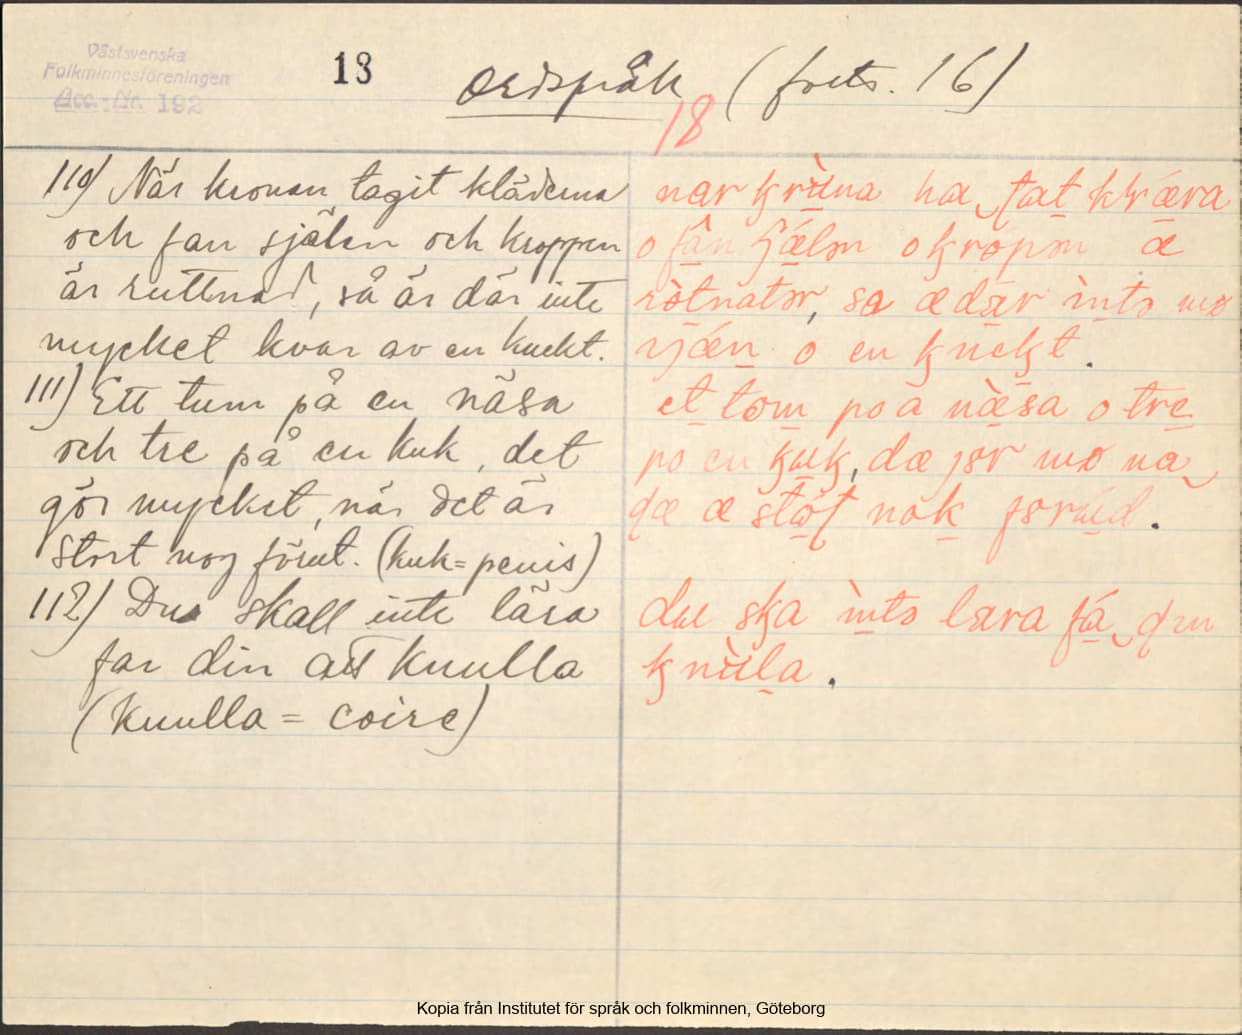 Västsvenska
Folkminnesföreningen
Acc. Nr. 192
18
Ordspråk (forts. 16)
18
110) När kronan tagit kläderna
och fan själen och kroppen
är ruttnad, så är där inte
mycket kvar av en knekt.
111) Ett tum på en näsa
och tre på en kuk, det
gör mycket, när det är
stort nog förut. (kuk = penis)
112) Du skall inte lära
far din att knulla
(knulla = coire)
nar krùna ha tat kɬæra
o fân sjælən o kropən æ
ròtnatər, sa æ dær ìntə
o en knekt.
et tom po a næ̀sa o tre
po en kuk, dæ jər
dæ æ stot nok fərud.
du ska ìntə læra fá
knùla.
Kopia från Institutet för språk och folkminnen, Göteborg